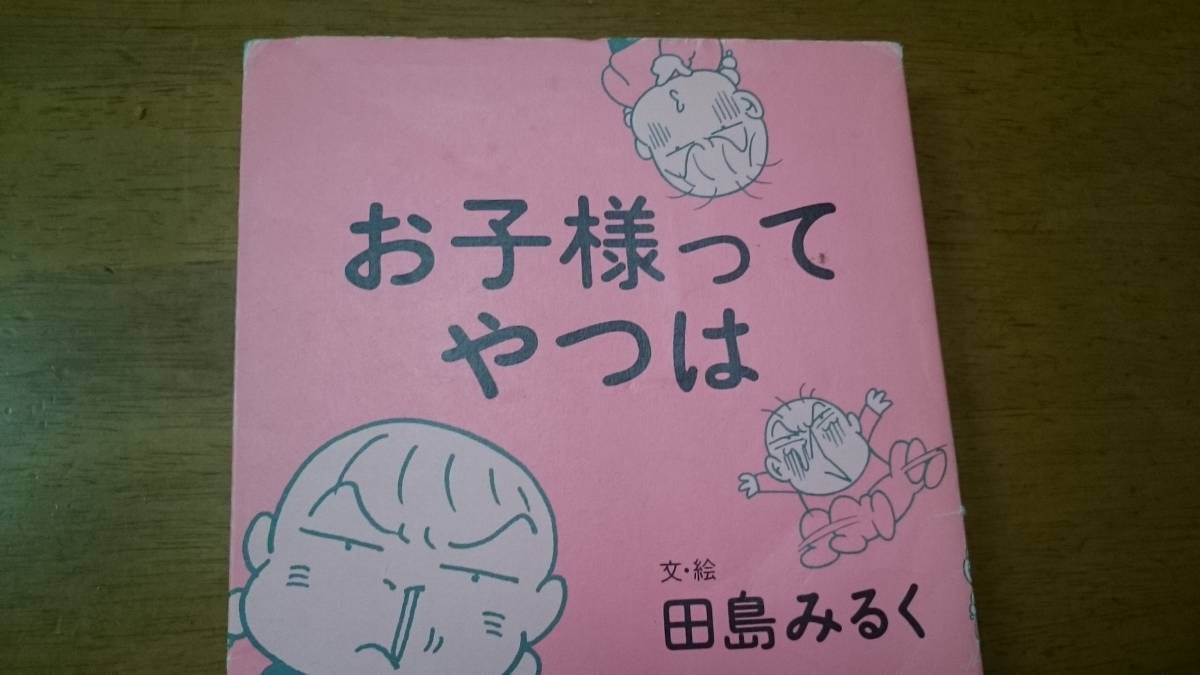 お子様って
やつは
文・絵
田島みるく